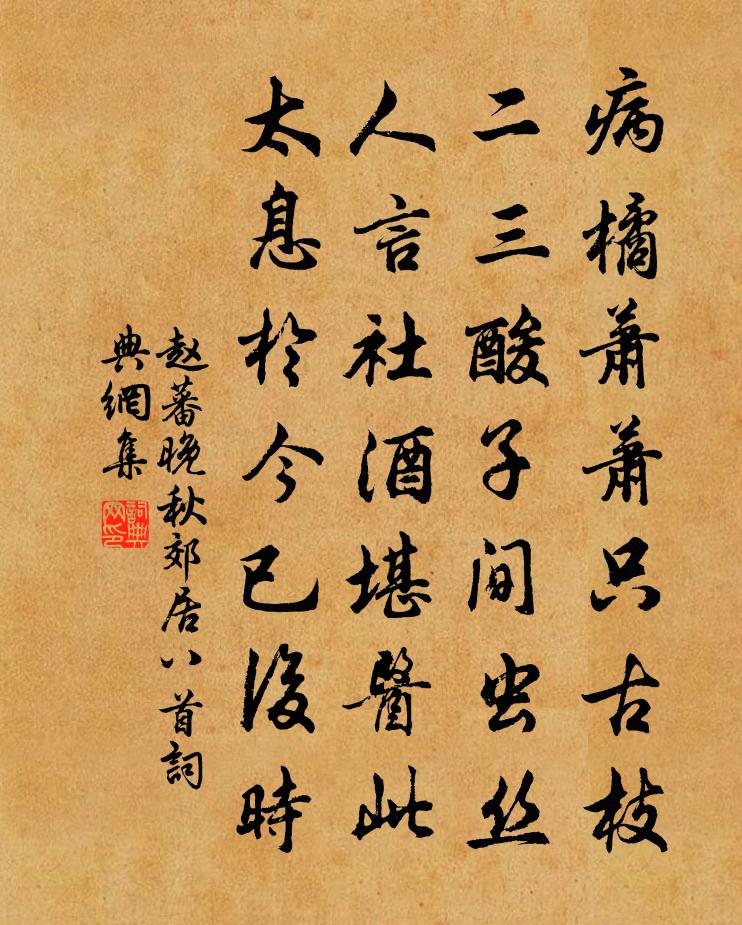 病橘萧萧只古枝
二三酸子间虫丝
人言社酒堪醫此
太息於今已後時
赵蕃晚秋郊居八首詞
典網集
詞典
网印